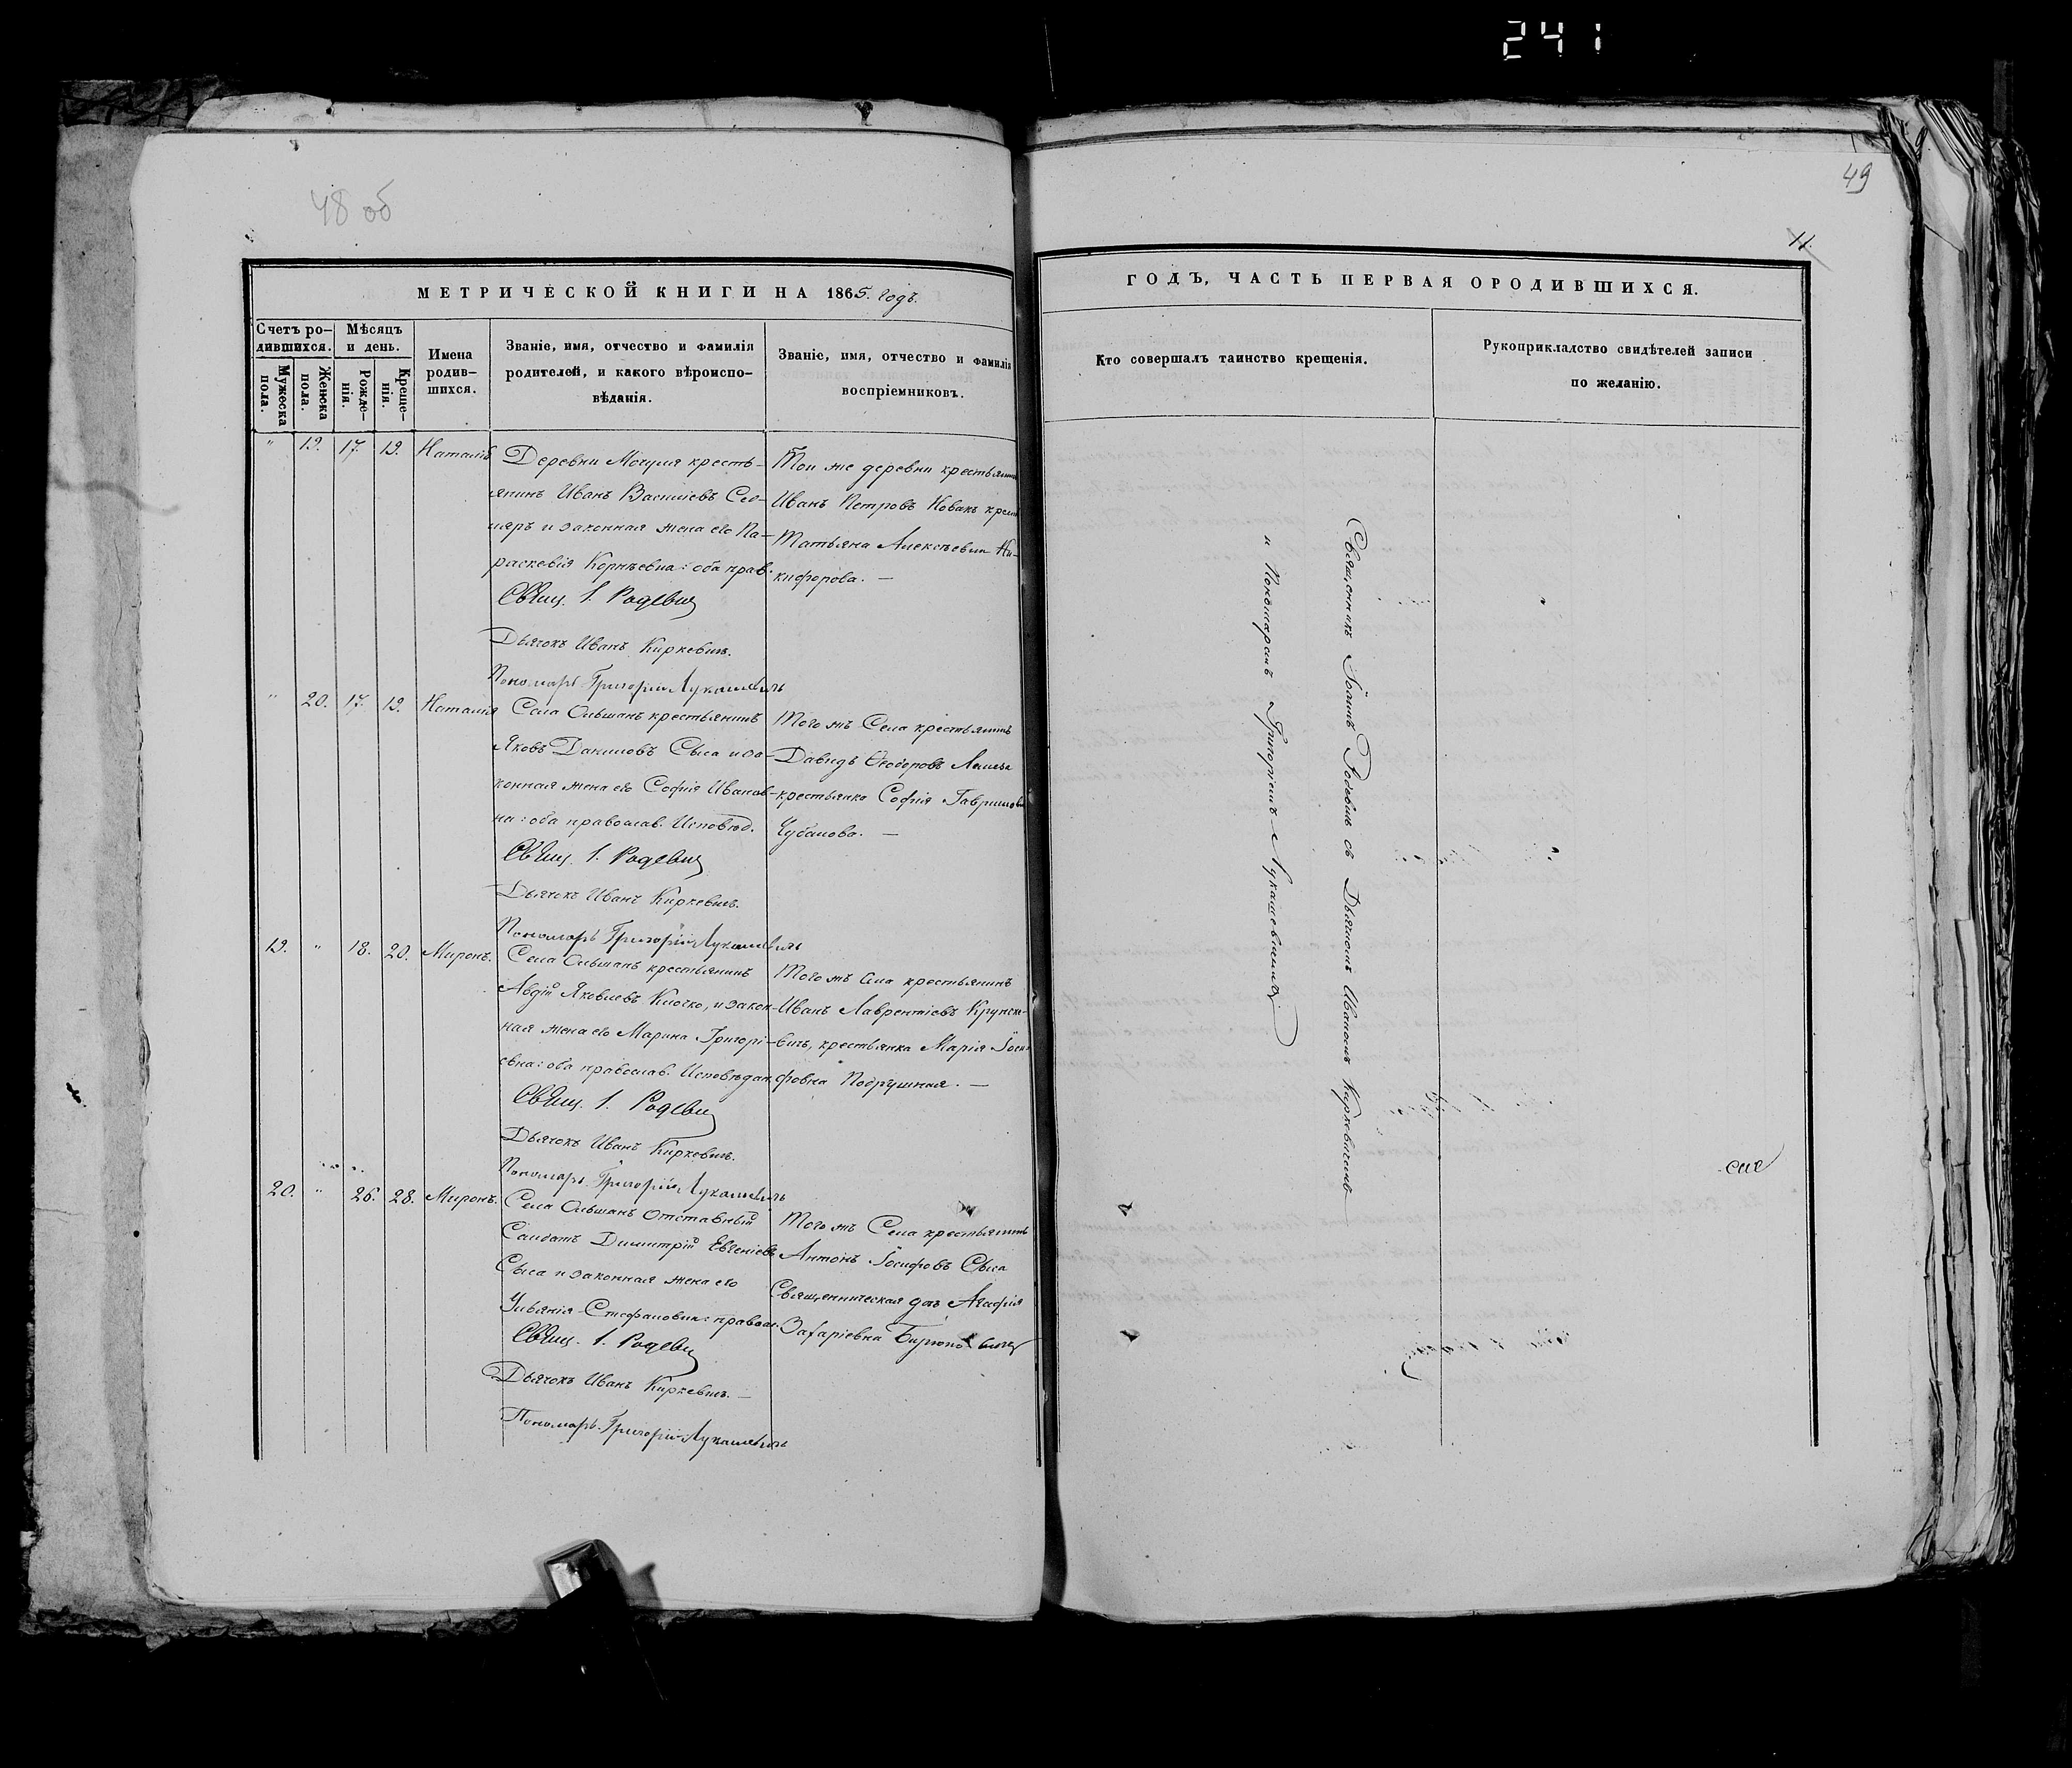 241
48 об
49
11.
МЕТРИЧЕСКОЙ КНИГИ НА 1865. годъ.
Счетъ ро-
дившихся.
Мужеска
пола.
Женска
пола.
Мѣсяцъ
и день.
Рожде-
нія.
Креще-
нія.
Имена
родив-
шихся.
Званіе, имя, отчество и фамилія
родителей, и какого вѣроиспо-
вѣданія.
Званіе, имя, отчество и фамилія
воспріемниковъ.
" 19. 17. 19. Наталія
Деревни Мочуля кресть-
янинъ Иванъ Василіевъ
и законная жена его Па-
раскевія Корнѣевна: оба прав.
Свящ. І. Родевич
Дьячокъ Иванъ Киркевичъ.
Пономарь Григорій Лукашевичъ
Той же деревни крестьянинъ
Иванъ Петровъ Новакъ крест
Татьяна Алексѣевна Ни-
кифорова. —
" 20. 17. 19. Наталія
Села Ольшанъ крестьянинъ
Яковъ Даниловъ Сыса и за-
конная жена его Софія Иванов-
на: оба православ. Исповѣд.
Свящ. І. Родевич
Дьячокъ Иванъ Киркевичъ.
Пономарь Григорій Лукашевичъ
Того жъ Села крестьянинъ
Давидъ Ѳеодоровъ
крестьянка Софія Гаврилов
Чубанова. —
19. " 18. 20. Миронъ.
Села Ольшанъ крестьянинъ
Авдій Яковлевъ Клочко, и закон-
ная жена его Марина Григорі-
евна: оба православ. Исповѣдан
Свящ. І. Родевич
Дьячокъ Иванъ Киркевичъ.
Пономарь Григорій Лукашевичъ
Того жъ Села крестьянинъ
Иванъ Лаврентіевъ Крупско-
вичъ, крестьянка Марія Іоси-
фовна Подрушная. —
20. " 26. 28. Миронъ.
Села Ольшанъ Отставный
Солдатъ Димитрій Евгеніевъ
Сыса и законная жена его
Ульянія Стефановна: правосл.
Свящ. І. Родевич
Дьячокъ Иванъ Киркевичъ. —
Пономарь Григорій Лукашевичъ
Того жъ Села крестьянинъ
Антонъ Іосифовъ Сыса
Священническая дочь Агафія
Захаріевна
ГОДЪ, ЧАСТЬ ПЕРВАЯ ОРОДИВШИХСЯ.
Кто совершалъ таинство крещенія.
Рукоприкладство свидѣтелей записи
по желанію.
Священникъ Іоаннъ Родевичъ съ Дьячкомъ Иваномъ Киркевичемъ
и Пономаремъ Григоріемъ Лукашевичемъ